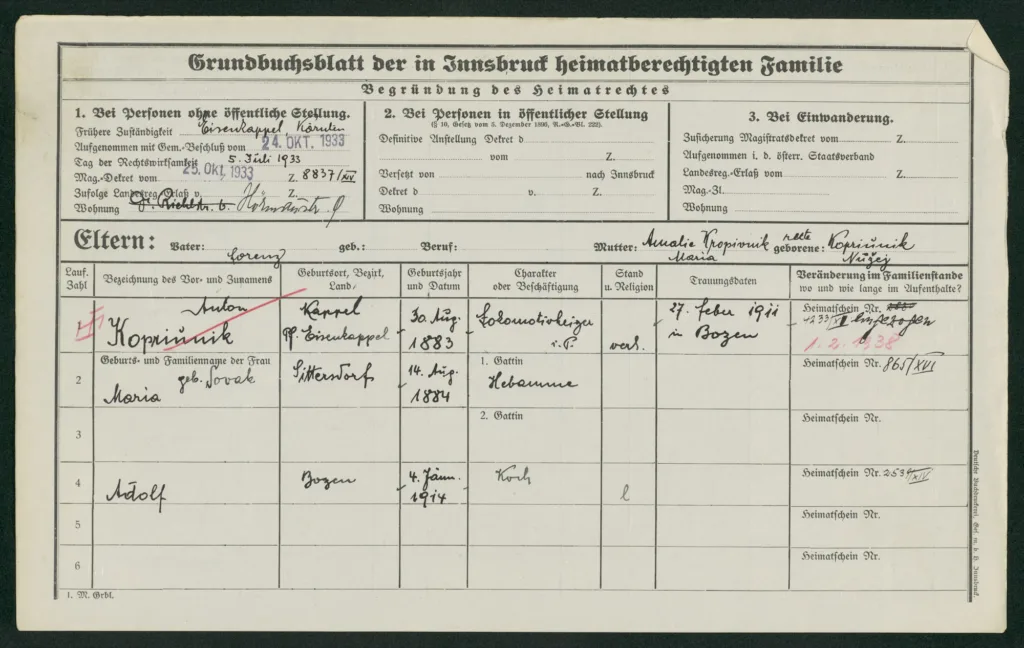 Grundbuchsblatt der in Innsbruck heimatberechtigten Familie
Begründung des Heimatrechtes
1. Bei Personen ohne öffentliche Stellung.
Frühere Zuständigkeit Eisenkappel, Kärnten
Aufgenommen mit Gem.-Beschluß vom 24. OKT. 1933
Tag der Rechtswirksamkeit 5. Juli 1933
Mag.-Dekret vom 25. Okt. 1933 Z. 8837/XIV
Zufolge Landesreg.-Erlaß v. Z.
Wohnung
2. Bei Personen in öffentlicher Stellung
(§ 10, Gesetz vom 5. Dezember 1896, R.-G.-Bl. 222).
Definitive Anstellung Dekret d
vom Z.
Versetzt von nach Innsbruck
Dekret d v. Z.
Wohnung
3. Bei Einwanderung.
Zusicherung Magistratsdekret vom Z.
Aufgenommen i. d. österr. Staatsverband
Landesreg.-Erlaß vom Z.
Mag.-Zl.
Wohnung
Eltern: Vater: Lorenz geb.: Beruf: Mutter: Amalie Kropivnik recte geborene: Kopriunik
Maria
Lauf. Zahl
Bezeichnung des Vor- und Zunamens
Geburtsort, Bezirk, Land
Geburtsjahr und Datum
Charakter oder Beschäftigung
Stand u. Religion
Trauungsdaten
Veränderung im Familienstande
wo und wie lange im Aufenthalte?
1
Anton
Kopriunik
Kappel
Pf. Eisenkappel
30. Aug.
1883
Lokomotivheizer
i. P.
verh.
27. Feber 1911
in Bozen
Heimatschein Nr.
1. 2. 1938
2
Geburts- und Familienname der Frau
geb. Sovak
Maria
Sittersdorf
14. Aug.
1884
1. Gattin
Hebamme
Heimatschein Nr. 865/XVI
3
2. Gattin
Heimatschein Nr.
4
Adolf
Bozen
4. Jänn.
1914
Koch
l
Heimatschein Nr. 2534/XIV
5
Heimatschein Nr.
6
Heimatschein Nr.
1. M. Grbl.
Deutsche Buchdruckerei, Ges. m. b. H. Innsbruck.